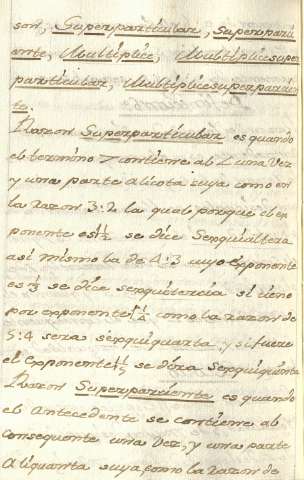 son, Superparticular, Superparti
ente, Multiplice, Multiplicesuper
particular, Multiplicesuperparcien
te.
Razon Superparticular es quando
el termino contiene al L una Vez
y una parte Alicota suya como en
la razon 3:2 la qual porque el ex
ponente es 1½ se dice Sexquialtera
asi mismo la de 4:3 cuyo Exponente
es ⅓ se dice sexquitercia si tiene
por exponente ¼ como la razon de
5:4 sera sexquiquarta y si fuere
el exponente 1⅕ se dira sexquiquinta
Razon Superparciente es quando
el Antecedente se contiene al
consequente una Vez, y una parte
Aliquanta suya, como la razon de